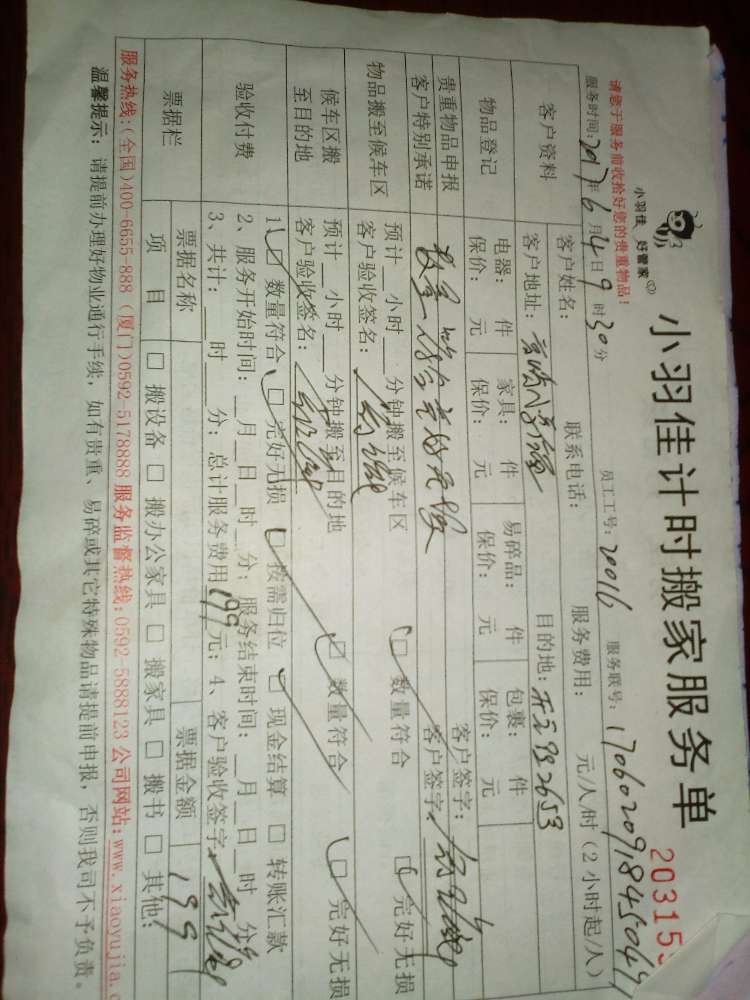 小羽佳计时搬家服务单
小羽佳 好管家
请您于服务前收拾好您的贵重物品!
203155
员工工号: 20016 服务联号:
服务时间: 2017年6月4日9时30分
客户资料
客户姓名: 联系电话: 服务费用: 元/人/时(2小时起/人)
客户地址: 目的地:
物品登记
电器: 件 家具: 件 易碎品: 件 包裹: 件
保价: 元 保价: 元 保价: 元 保价: 元
客户签字:
贵重物品申报
客户特别承诺
数量 完好无损
客户签字:
物品搬至候车区
预计__小时__分钟搬至候车区
客户验收签名: 数量符合 完好无损
候车区搬
至目的地
预计__小时__分钟搬至目的地
客户验收签名: 数量符合 完好无损
验收付费
1、 数量符合、 完好无损 按需归位 现金结算 □ 转账汇款
2、服务开始时间:__月__日__时__分; 服务结束时间:__月__日__时__分;
3、共计:__时__分; 总计服务费用199元; 4、客户验收签字:
票据栏
票据名称 票据金额 199
项目 □ 搬设备 □ 搬办公家具 □ 搬家具 □ 搬书 □ 其他:
服务热线:(全国)400-6655-888 (厦门)0592-5178888 服务监督热线:0592-5888123 公司网站:www.xiaoyujia.c
温馨提示: 请提前办理好物业通行手续, 如有贵重、易碎或其它特殊物品请提前申报, 否则我司不予负责。